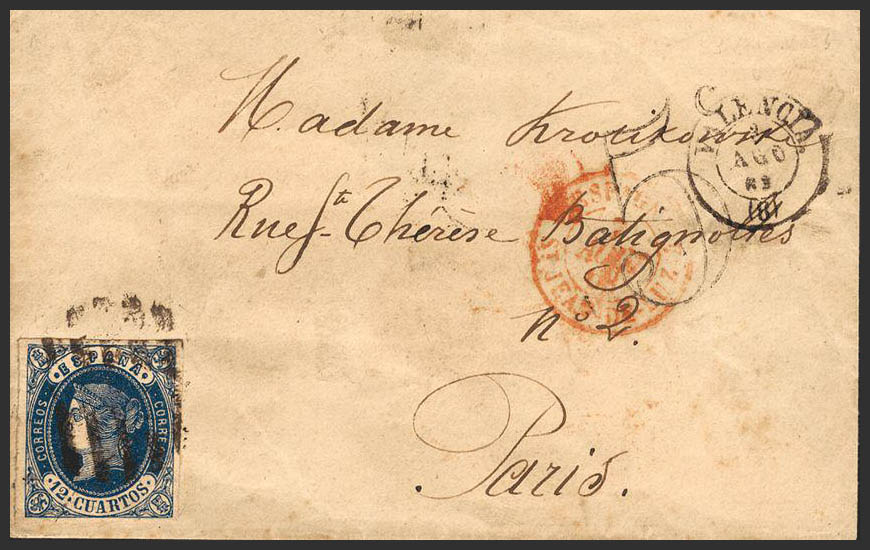 Madame Krotikowsk
Rue Ste Thérèse Batignolles
no 2.
Paris.
PALENCIA
2
AGO
62
(8)
ESP
ST JEAN-DE-LUZ
ESPAÑA
CORREOS
CORREOS
12·CUARTOS